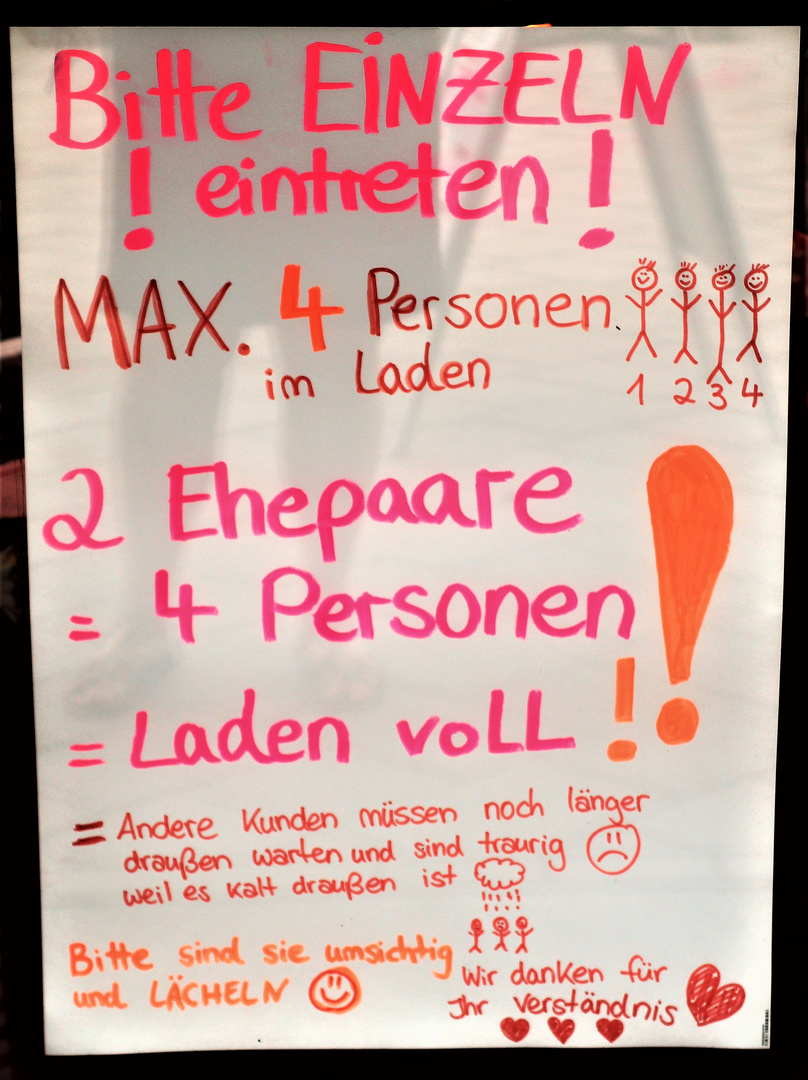 Bitte EINZELN
! eintreten !
MAX. 4 Personen.
im Laden
1 2 3 4
2 Ehepaare
= 4 Personen
= Laden voLL !!
= Andere Kunden müssen noch länger
draußen warten und sind traurig
weil es kalt draußen ist
Bitte sind sie umsichtig
und LÄCHELN
Wir danken für
Ihr verständnis